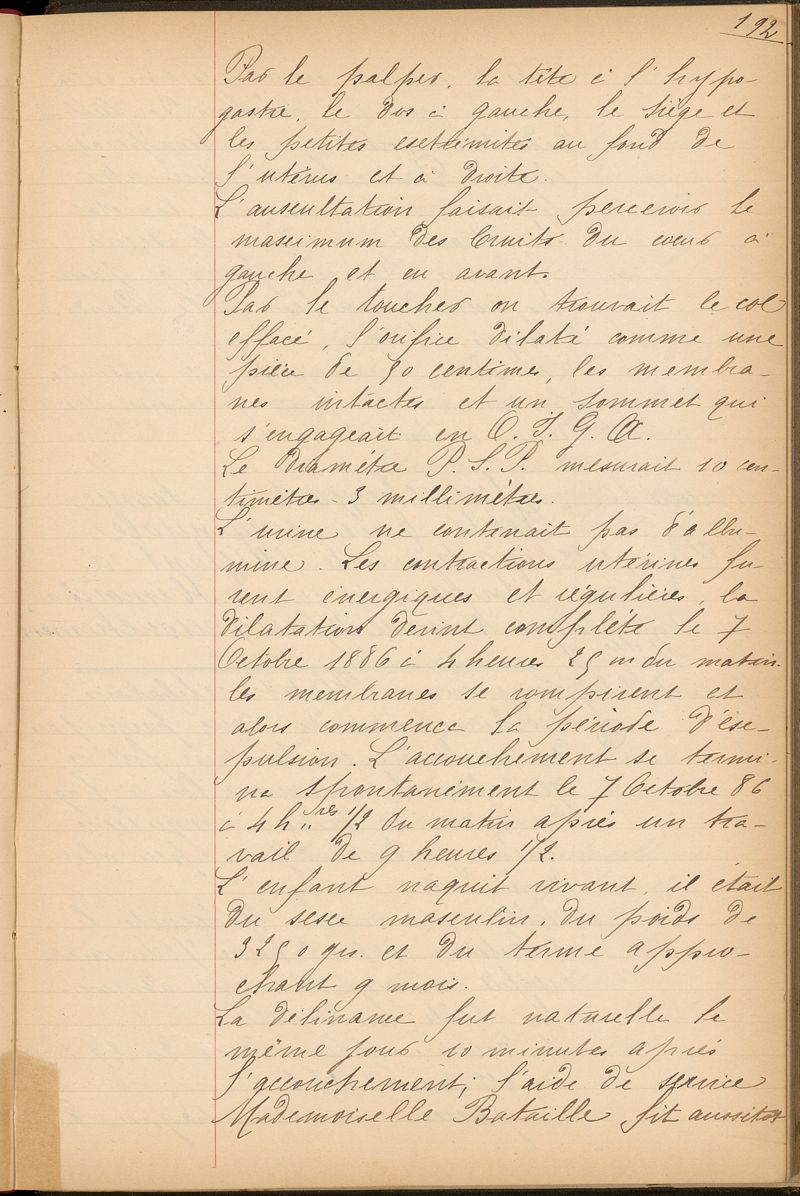 192
Par le palper, la tête à l'hypo-
gastre, le dos à gauche, le siège et
les petites extrémités au fond de
l'utérus et à droite.
L'auscultation faisait percevoir le
maximum des bruits du cœur à
gauche et en avant.
Par le toucher on trouvait le col
effacé, l'orifice dilaté comme une
pièce de 50 centimes, les membra-
nes intactes et un sommet qui
s'engageait en O. I. G. A.
Le diamètre P. S. P. mesurait 10 cen-
timètres 3 millimètres.
L'urine ne contenait pas d'albu-
mine. Les contractions utérines fu-
rent énergiques et régulières, la
dilatation devint complète le 7
Octobre 1886 à 4 heures 25 m du matin.
les membranes se rompirent et
alors commença la période d'ex-
pulsion. L'accouchement se termi-
na spontanément le 7 Octobre 86
à 4 h res 1/2 du matin après un tra-
vail de 9 heures 1/2.
L'enfant naquit vivant, il était
du sexe masculin, du poids de
3250 grs. et du terme appro-
chant 9 mois.
La délivrance fut naturelle le
même jour 10 minutes après
l'accouchement; l'aide de service
Mademoiselle Bataille fit aussitôt